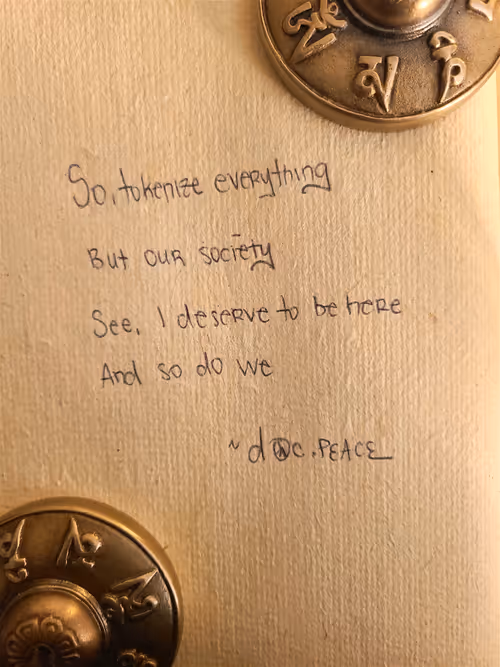 So, tokenize everything
But our society
See, I deserve to be here
And so do we
~ doc.PEACE